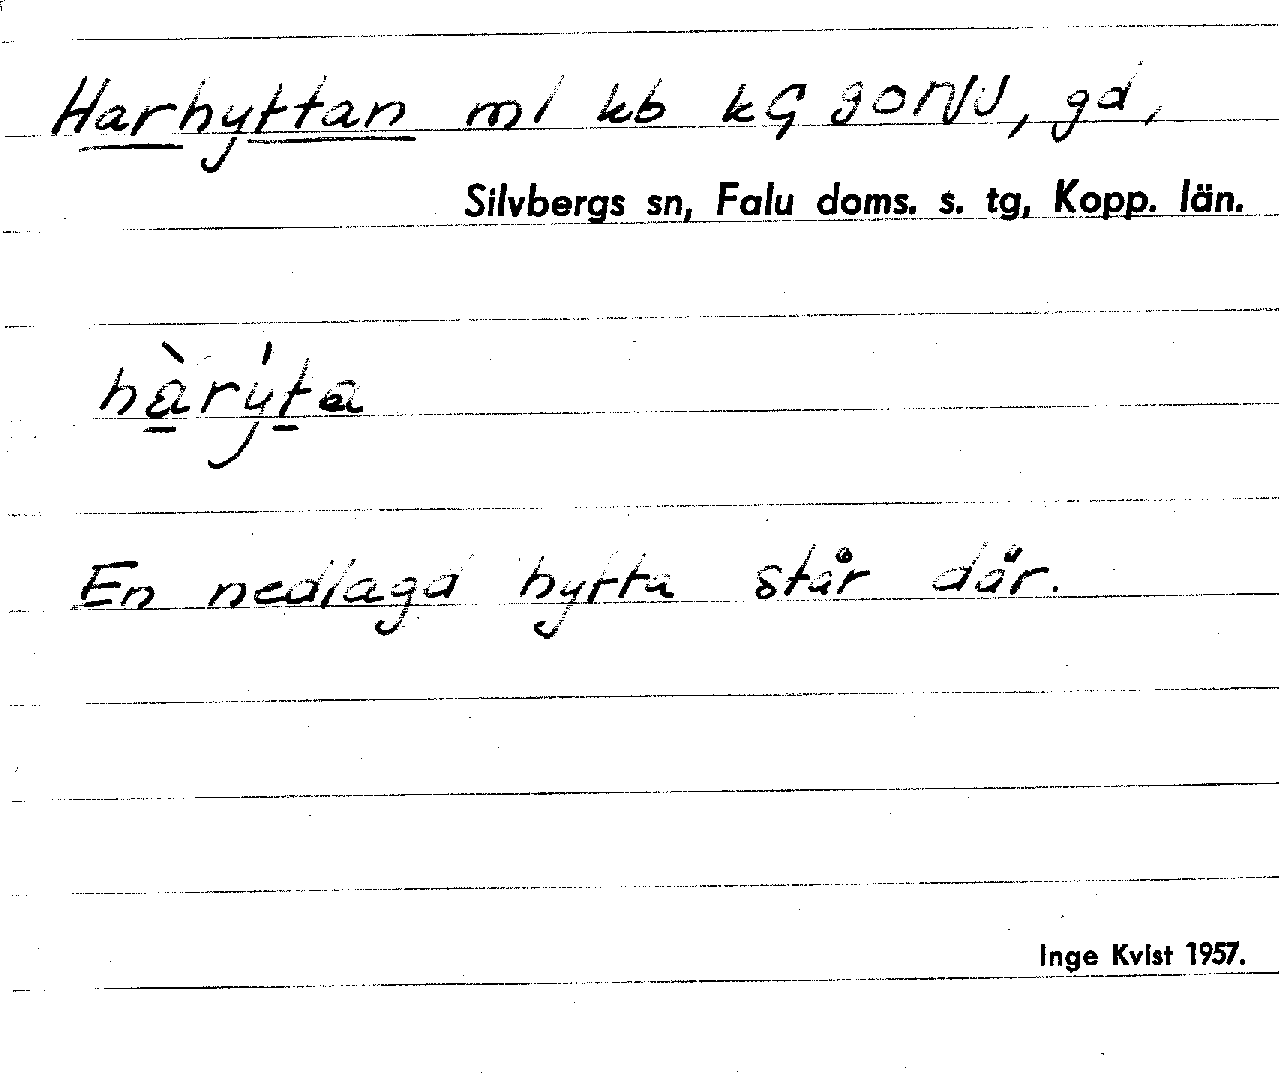 Harhyttan ml kb kG gonN, gd,
Silvbergs sn, Falu doms. s. tg, Kopp. län.
hàrýta
En nedlagd hytta står där.
Inge Kvist 1957.